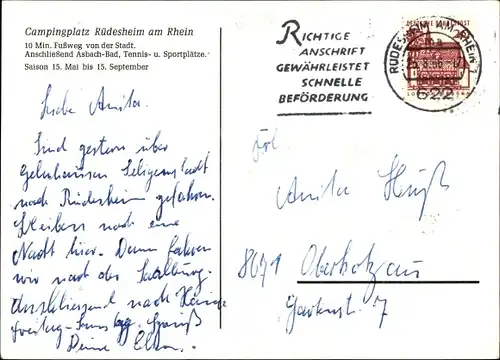 Campingplatz Rüdesheim am Rhein
10 Min. Fußweg von der Stadt.
Anschließend Asbach-Bad, Tennis- u. Sportplätze.
Saison 15. Mai bis 15. September
RICHTIGE
ANSCHRIFT
GEWÄHRLEISTET
SCHNELLE
BEFÖRDERUNG
DEUTSCHE BUNDESPOST
RÜDESHEIM AM RHEIN
622
Liebe Anita.
Sind gestern über
Gelnhausen Seligenstadt
nach Rüdesheim gefahren.
Bleiben noch eine
Nacht hier. Dann fahren
wir nach der Saalburg.
Anschliessend nach Hause
Freitag-Samstag. Gruß
Deine Eltern.
Frl.
Anita
8671 Oberkotzau
Gartenst. 7